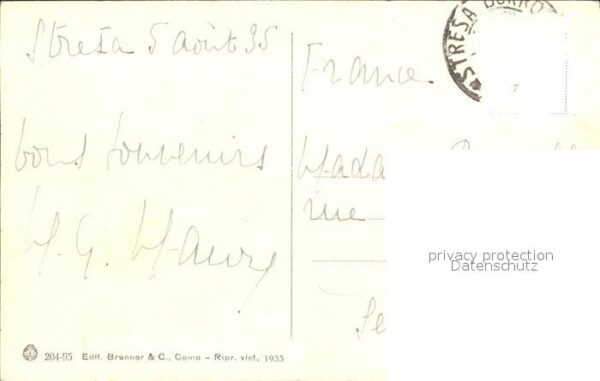 Stresa 5 août 35
bons souvenirs
STRESA BORRO
France
rue
privacy protection
Datenschutz
204-95 Edit. Brunner & C., Como - Ripr. viet. 1933